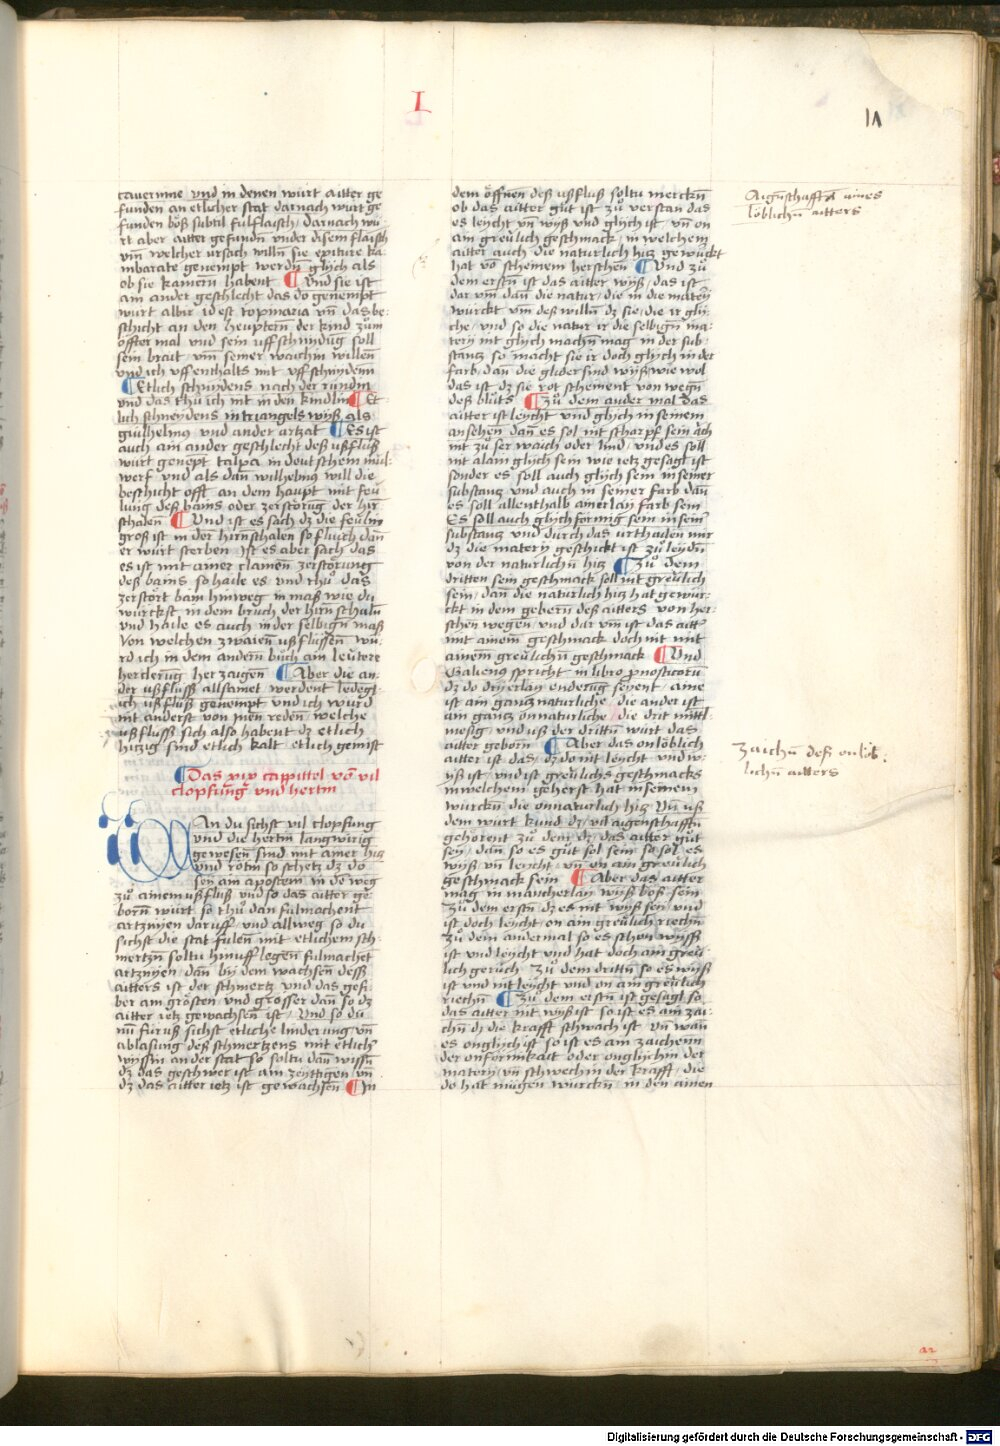 I
cavernne und in denen würt aitter ge
funden an etlicher stat darnach würt ge
funden böß subtil fulflaisch / darnach wü
rt aber aitter gefundn under disem flaisch
vm̄ welcher ursach willn sie epiture ka
mbarate genempt werdn̄ glych als
ob sie kamern habent ¶ Und sie ist
ain ander geschlecht das do genempt
würt albir id est topinaria vn̄ das be
schicht an den heuptern der kind zům
öffter mal und sein uffschnidung soll
sein brait vm̄ seiner waichin willen
und ich uffenthalts mit uffschnyden
¶ Etlich schnydens nach der rundin
und das thů ich nit in den kindlin ¶ Et
lich schneydens in triangels wyß als
guilhelmus und ander artzat ¶ Es ist
auch ain ander geschlecht deß ußfluß
würt genept talpa in deutschem mul
werf und als dan̄ wilhelmus will die
beschicht offt an dem haupt mit feu
lung deß bains oder zerstörūg der hir
schalen ¶ Und ist es sach dz die feulin
groß ist in der hirnschalen so fluich dan̄
er würt sterben Ist es aber sach das
es ist mit ainer clainen zerstörung
deß bains so haile es und thů das
zerstört bain hinweg in maß wie du
würckst in dem bruch der hirn schaln̄
und haile es auch in der selbign̄ maß
Von welchen zwaien ußflüssen wü
rd ich in dem andern bůch ain leutere
herclerūg her zaigen ¶ Aber die an
der ußflüß allsamet werdent ledegl
ich ußfluß genempt und ich würd
nit anderst von jnen reden welche
ußflüß sich also habent dz etlich
hitzig sind etlich kalt etlich gemist
¶ Das xix cappittel vō vil
clopfung und hertin
WAn du sichst vil clopfung
und die hertin langwirig
gewesen sind mit ainer hitz
und rötin so schetz dz do
sey ain apostem in de weg
zů ainem ußfluß und so das aitter ge
born würt so thů dan fulmachent
artznyen daruff und allweg so du
sichst die stat fulen mit etlichem sch
mertzn̄ soltu hinuff legen fulmachet
artznyen dan̄ by dem wachsen deß
aitters ist der schmertz und das gefi
ber am grösten und grösser dan̄ so dz
aitter ietz gewachsen ist Und so du
nu̅ furuß sichst etliche linderung vn̄
ablasung deß schmertzens mit etlich
wyssin an der stat so soltu dan̄ wissn̄
dz das geschwer ist am zeyttigen vn̄
dz das aitter ietz ist gewachsen ¶ In
dem öffnen deß ußfluß soltu merckn̄
ob das aitter gůt ist zů verstan das
es leycht vn̄ wyß und glych ist vn̄ on
ain greulich geschmack / in welchem
aitter auch die naturlich hitz gewürckt
hat vō scheinem herschen ¶ Und zů
dem erstn̄ ist das aitter wyß / das ist
dar vm̄ dan̄ die natur / die in die matery
würckt vm̄ deß willn̄ dz sie / die ir gly
che / und so die natur ir die selbign̄ ma
tery nit glych machn̄ mag in der sub
stantz so macht sie ir doch glych in der
farb / dan̄ die glider sind wyß wie wol
das ist dz sie rot scheinent von wegn̄
deß blůts ¶ Zů dem ander mal das
aitter ist leycht und glych in seinem
ansehen dan̄ es sol nit scharpf sein ach
nit zů ser waich oder lind / und es soll
nit alain glych sein wie ietz gesagt ist
sonder es soll auch glych sein in seiner
substantz und auch in seiner farb dan̄
es soll allenthalb ainerlay farb sein
Es soll auch glychförmig sein in sein
substantz und durch das urthailen nur
dz die matery geschickt ist zů leydn̄
von der naturlichn̄ hitz ¶ Zů dem
dritten sein geschmack soll nit greulich
sein / dan̄ die naturlich hitz hat gewür
ckt in dem gebern deß aitters von her
schen wegen und dar vm̄ ist das aitt
mit ainem geschmack doch nit mit
ainem greulichn̄ geschmack ¶ Und
Galienus spricht in libro pnosticorū
dz do dryerlay enderūg seyent / aine
ist ain gantz naturliche / die ander ist
ain gantz onnaturliche / die drit mittl
mesig / und uß der drittn̄ würt das
aitter geborn ¶ Aber das onlöblich
aitter ist das / dz do nit leycht und w
yß ist / und ist greulichs geschmacks
in welchem geherst hat in seinem
würckn̄ die onnaturlich hitz Vn̄ uß
dem würt kund dz / vil aigenschafftn̄
gehörent zů dem dz / das aitter gůt
sey / dan̄ so es gůt sol sein so sol es
wyß / vn̄ leycht vn̄ on ain greulich
geschmack sein ¶ Aber das aitter
mag in mancherlay wyß böß sein
Zů dem erstn̄ dz es nit wyß sey und
ist doch leycht / on ain greulich riechn̄
Zů dem andermal so es schon wyß
ist und leycht und hat doch ain greu
lich geruch Zů dem drittn̄ so es wyß
ist und nit leycht und on ain greulich
riechn̄ ¶ Zů dem erstn̄ ist gesagt so
das aitter nit wyß ist so ist es ain zai
chn̄ dz die krafft schwach ist vn̄ wan̄
es onglych ist so ist es ain zaichenn
der onformikait oder onglychin der
matery / vn̄ schwech in der krafft / die
do hat mügen würckn̄ in den ainen
Aigenschafft aines
löblichn̄ aitters
zaichn̄ deß onlöb
lichn̄ aitters
Digitalisierung gefördert durch die Deutsche Forschungsgemeinschaft - DFG